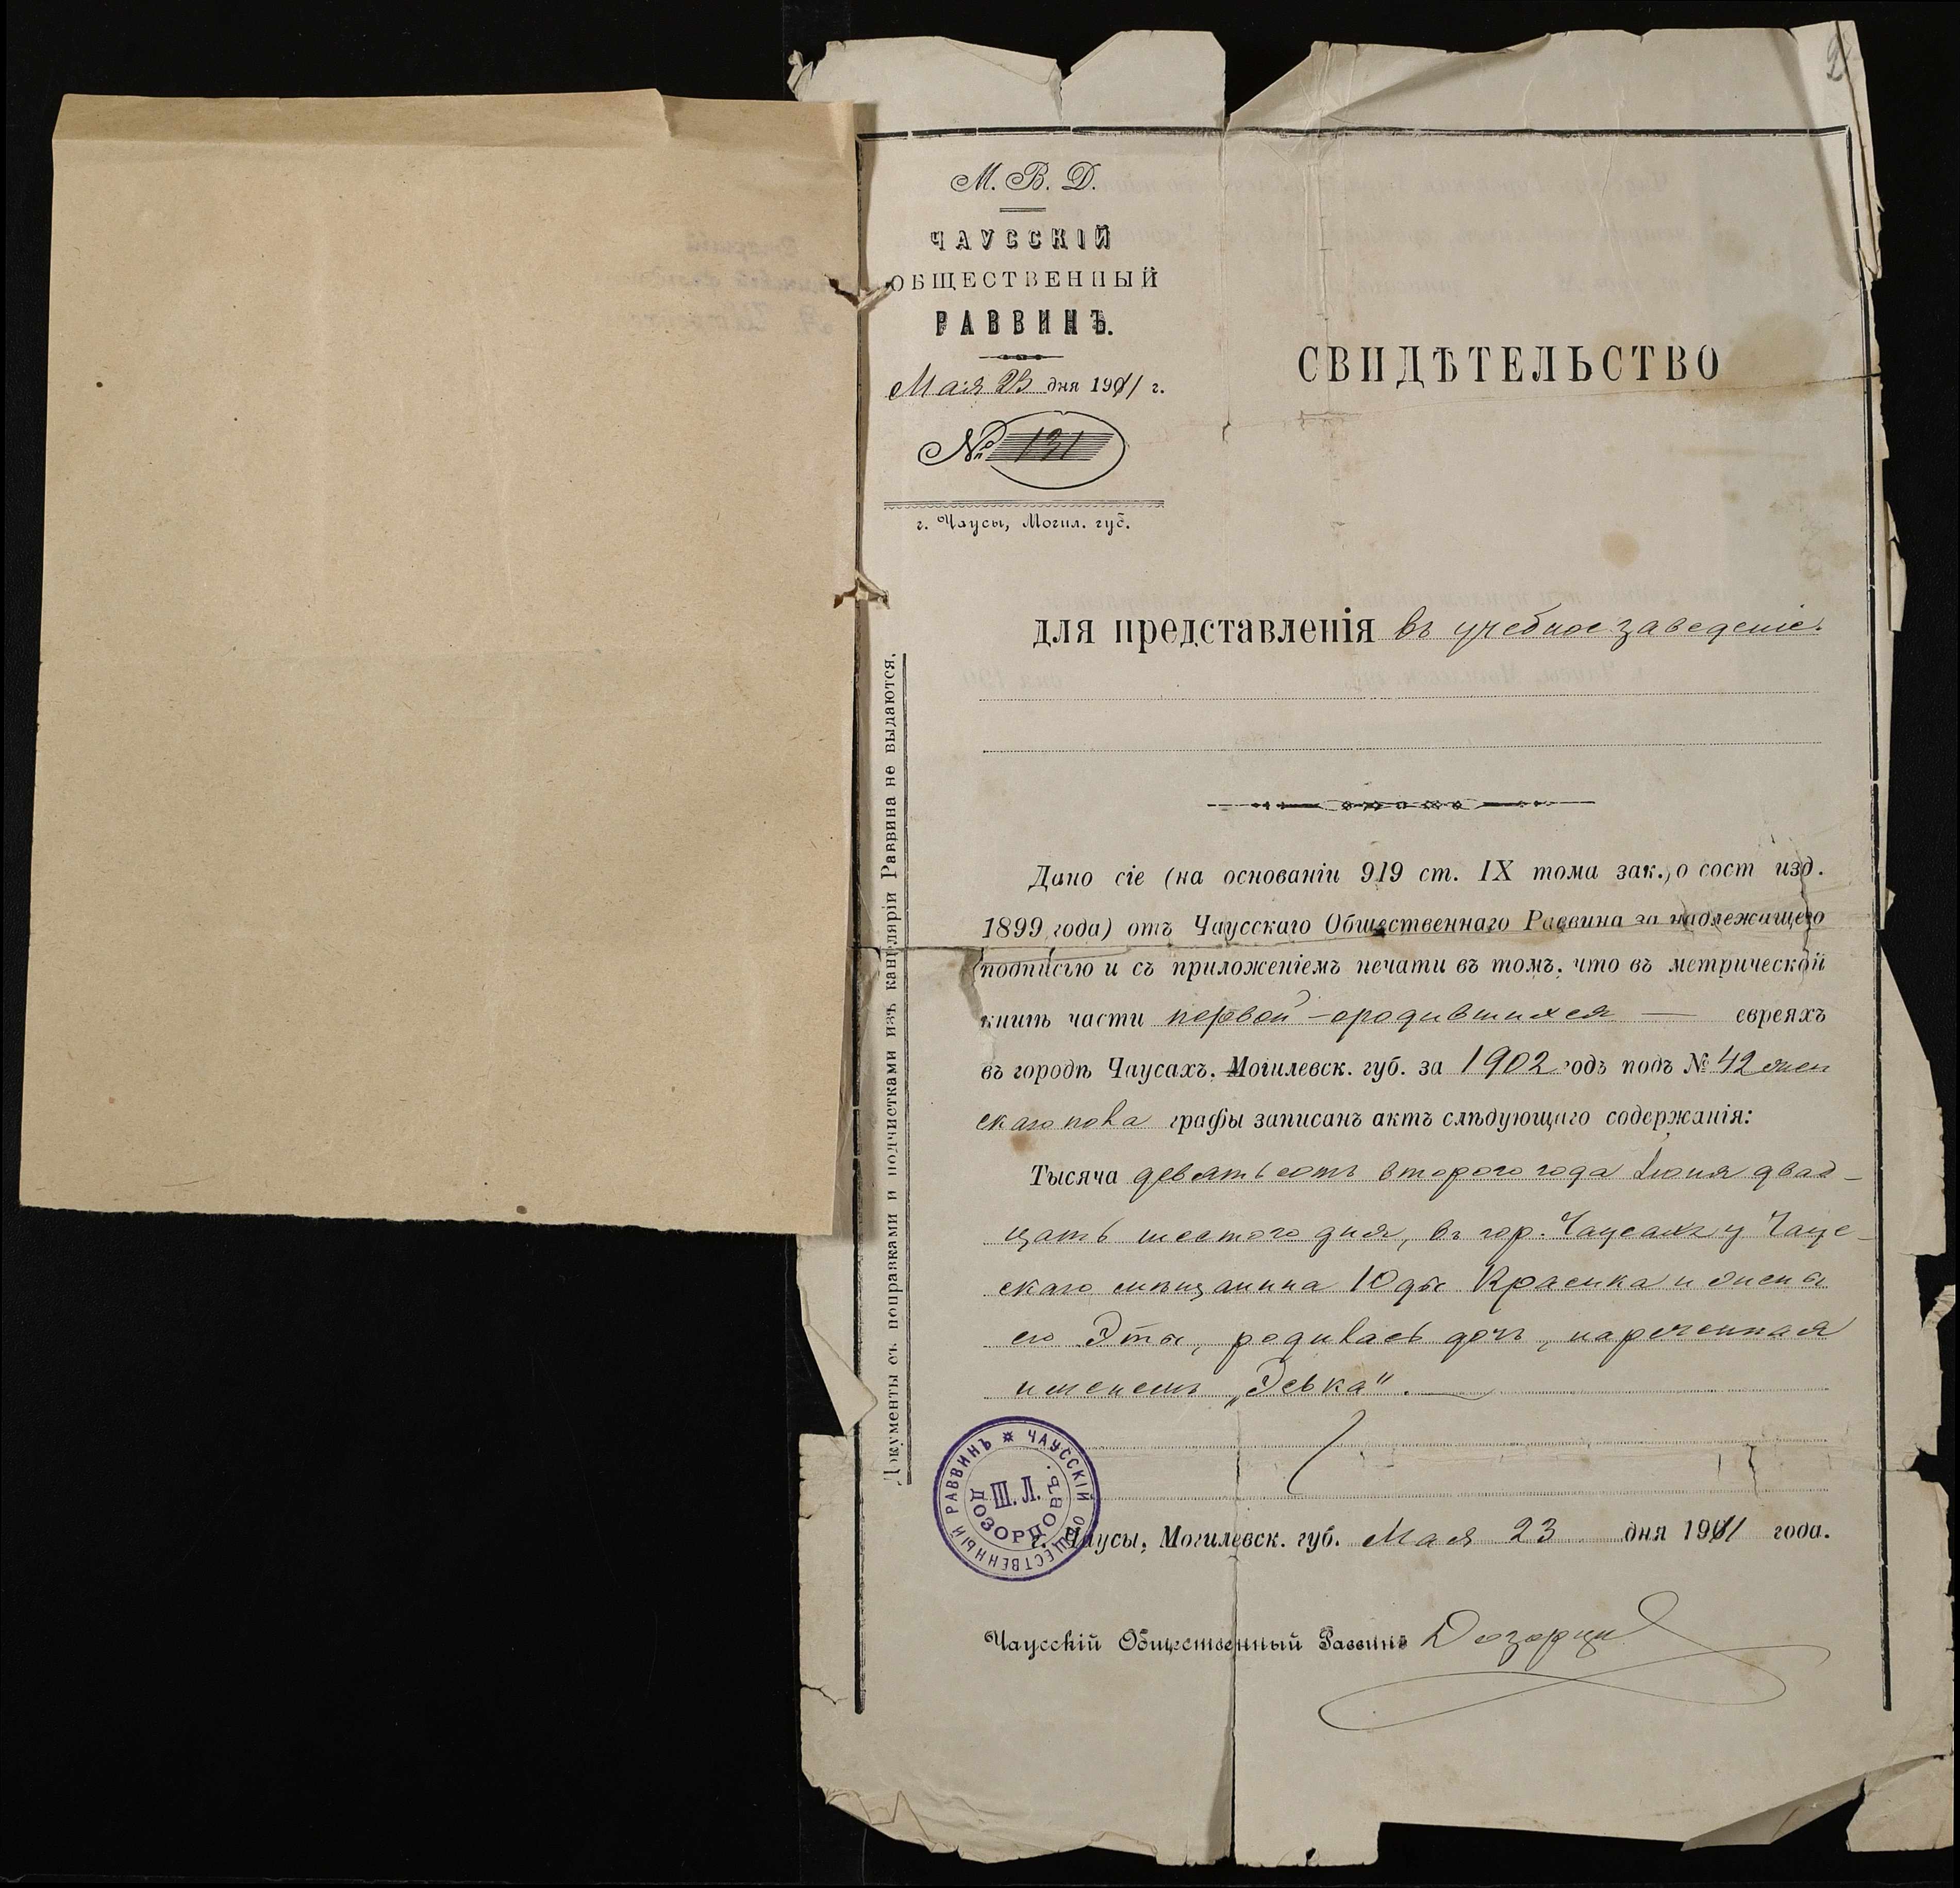 2
М. В. Д.
ЧАУССКІЙ
ОБЩЕСТВЕННЫЙ
РАВВИНЪ.
Мая 23 дня 1911 г.
№ 131
г. Чаусы, Могил. губ.
СВИДѢТЕЛЬСТВО
для представленія въ учебное заведеніе.
Дано сіе (на основаніи 919 ст. IX тома зак. о сост изд.
1899 года) отъ Чаусскаго Общественнаго Раввина за надлежащего
подписью и съ приложеніемъ печати въ томъ, что въ метрической
книгѣ части первой - о родившихся — евреяхъ
въ городѣ Чаусахъ, Могилевск. губ. за 1902 годъ подъ № 42 жен
скаго пола графы записанъ актъ слѣдующаго содержанія:
Тысяча девятьсотъ второго года Іюня двад-
цать шестого дня, въ гор. Чаусахъ у Чаус-
скаго мѣщанина Юды Красика и жены
его Эты, родилась дочь, нареченная
именемъ „Эська".
г. Чаусы, Могилевск. губ. Мая 23 дня 1911 года.
Чаусскій Общественный Раввинъ Дозорцовъ
ЧАУССКІЙ ОБЩЕСТВЕННЫЙ РАВВИНЪ
Ш. Л.
ДОЗОРЦОВЪ.
Документы съ поправками и подчистками изъ канцеляріи Раввина не выдаются.